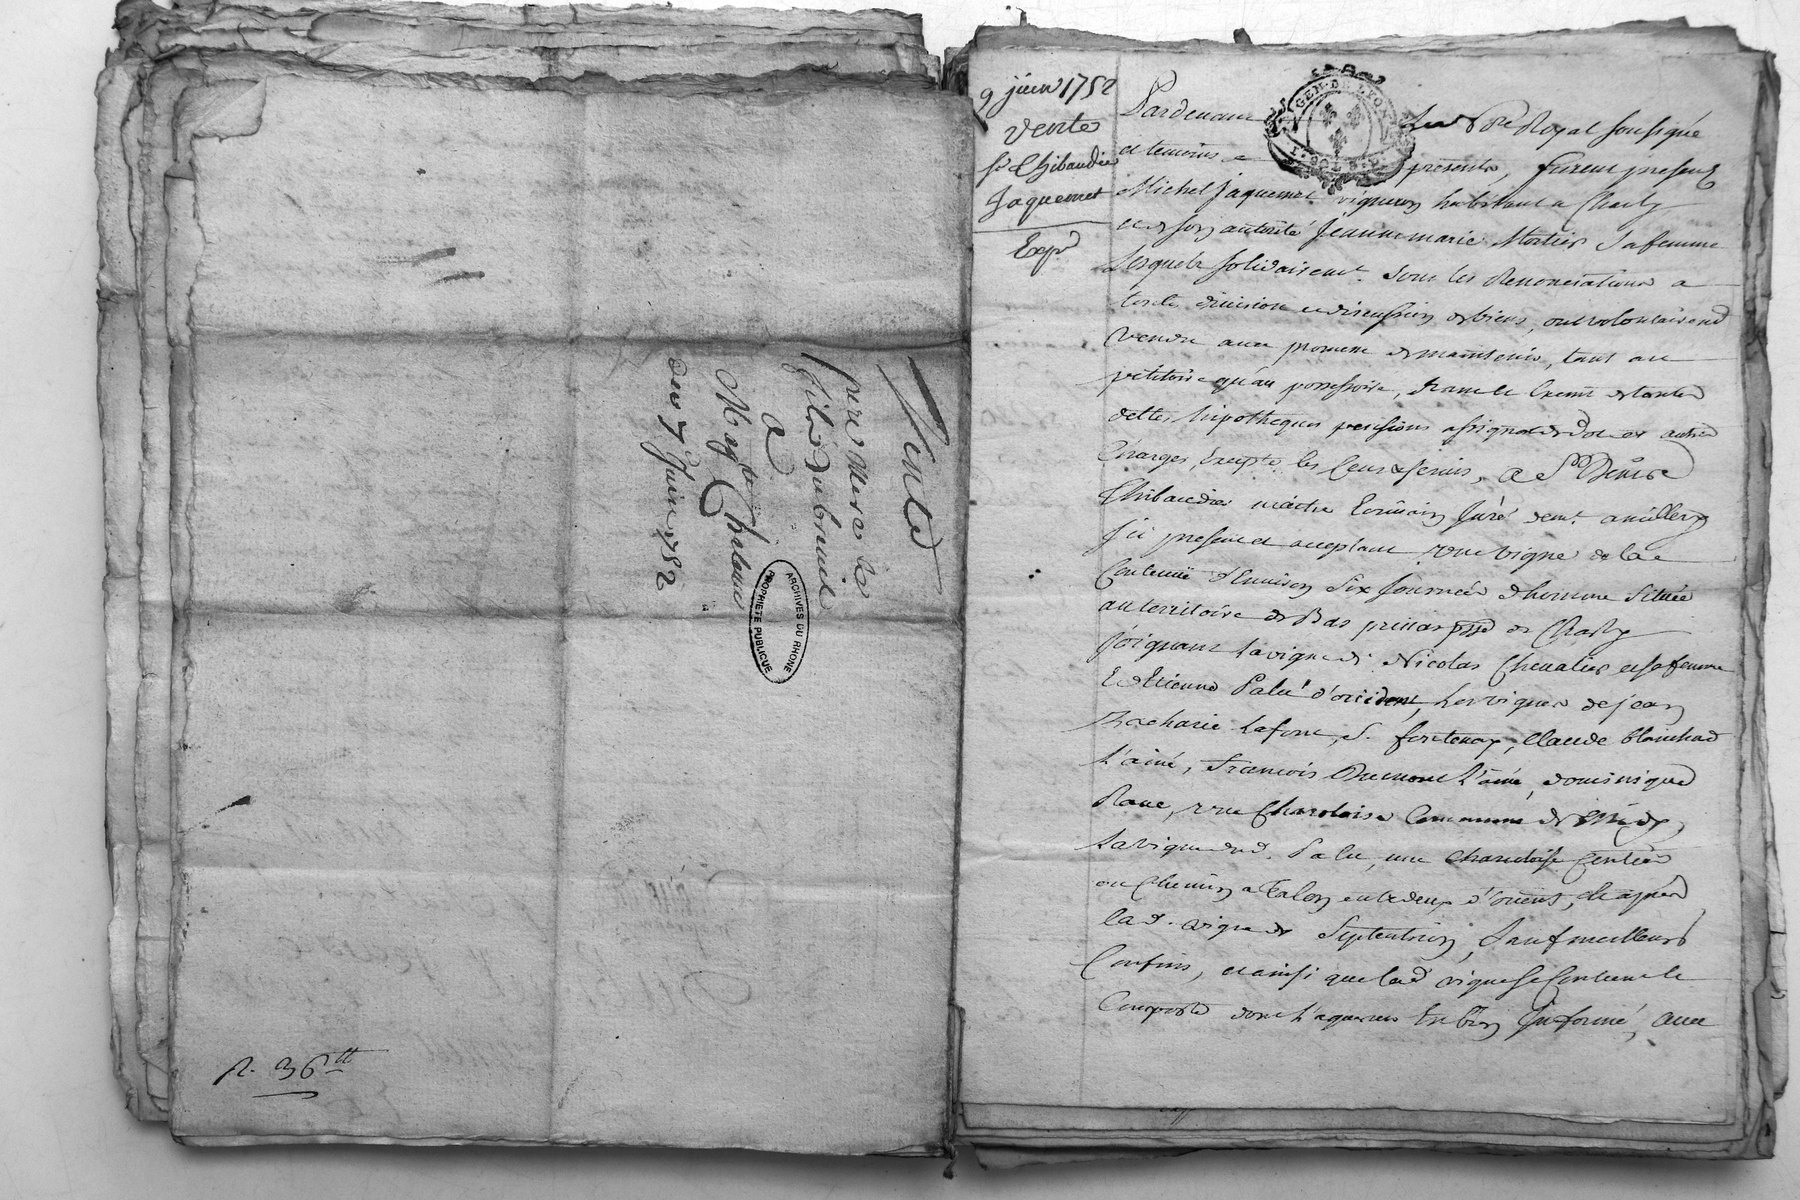 Vente
pierre Mere &
fils Dubreuil
a
Marg.te Chelone
du 7 Juin 1752
ARCHIVES DU RHONE
PROPRIETE PUBLIQUE
r. 36tt
9 juin 1752
Vente
Sr Thibaudier
Jaquemet
Exp.
GEN. DE LYON
Pardevant Royal soussigné
et temoins presents, furent presents
Michel Jaquemet vigneron habitant a Charly
et de son autorité Jeanne marie Mortier sa femme
lesquels solidairemt. sous les Renonciations a
toute division et discussion de biens, ont volontairemt
vendu avec promesse de maintenir, tant au
petitoire qu'au possessoire, franc et exemt de toutes
dettes, hipotheques pensions assignat de dot et autres
Charges, Excepté les Cens & servis, a Sr
Thibaudier maitre Ecrivain Juré demt. a millery
ici present et acceptant une vigne de la
Contenue d'Environ Six journées d'homme Située
au territoire de Bas parroisse de Charly
Joignant la vigne de Nicolas Chevalier et sa femme
& Etienne Palu d'occident, les vignes de jean
Zacharie Lafont, S. fontenay, Claude blanchard
L'ainé, francois Dumont L'ainé, dominique
Rave, une Charoloise Commune
La vigne dud. Palu, une charoloise
ou Chemin a Talon entredeux d'orient, et
lad. vigne de Septentrion, Sauf meilleurs
Confins, et ainsi que lad vigne se Contient et
Comporte dont L'aquereur Est bien Informé, avec